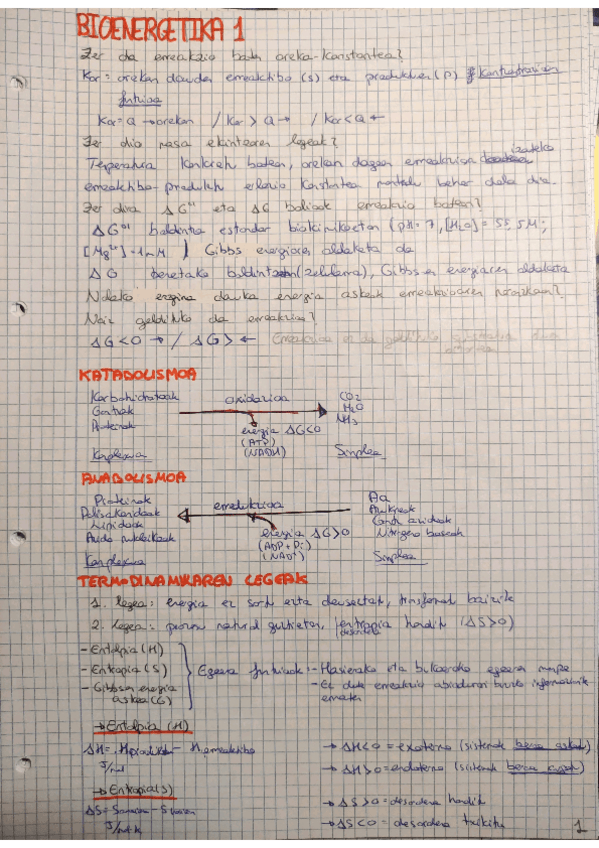 BIOENERGETIKA 1
Zer da erreakzio baten oreka-konstantea?
Kor = orekan dauden erreaktibo (s) eta produktuen (P) kontzentrazioen
funtzioa
Kor = Q → orekan / Kor > Q → / Kor < Q ←
Zer dio masa ekintzaren legeak?
Tenperatura konkretu batean, orekan dagoen erreakzioan izateko
erreaktibo-produktu erlazio konstantea mantendu behar dela dio.
Zer dira ΔG°' eta ΔG balioak erreakzio batean?
ΔG°' baldintza estandar biokimikoetan (pH=7, [H2O]=55,5M;
[Mg2+]=1mM) Gibbs energiaren aldaketa da
ΔG benetako baldintzetan (zelularra), Gibbsen energiaren aldaketa
Nolako eragina dauka energia askeak erreakzioaren norazkoan?
Noiz geldituko da erreakzioa?
ΔG<0 → / ΔG> ← Erreakzioa ez da geldituko
KATABOLISMOA
Karbohidratoak oxidazioa CO2
Gantzak H2O
Proteinak NH3
energia ΔG<0
(ATP)
Konplexua (NADH) Sinplea
ANABOLISMOA
Proteinak Aa
Polisakaridoak erredukzioa Azukreak
Lipidoak Gantz azidoak
Azido nukleikoak energia ΔG>0 Nitrogeno baseak
(ADP + Pi)
Konplexua (NAD+) Sinplea
TERMODINAMIKAREN LEGEAK
1. legea: energia ez sortu ezta deusestatu, transformatu baizik
2. legea: prozesu natural guztietan, entropia handitu (ΔS>0)
desordena
- Entalpia (H)
- Entropia (S) Egoera funtzioak: - Hasierako eta bukaerako egoera
- Gibbsen energia - Ez dute erreakzio abiaduraren buruz informaziorik
askea (G) ematen
→ Entalpia (H)
ΔH = Hproduktu - Herreaktibo → ΔH<0 = exotermo (sistemak beroa askatu)
J/mol → ΔH>0 = endotermo (sistemak beroa xurgatu)
→ Entropia (S)
→ ΔS>0 = desordena handitu
ΔS = Samaieran - Shasieran
J/mol·K → ΔS<0 = desordena txikitu
1